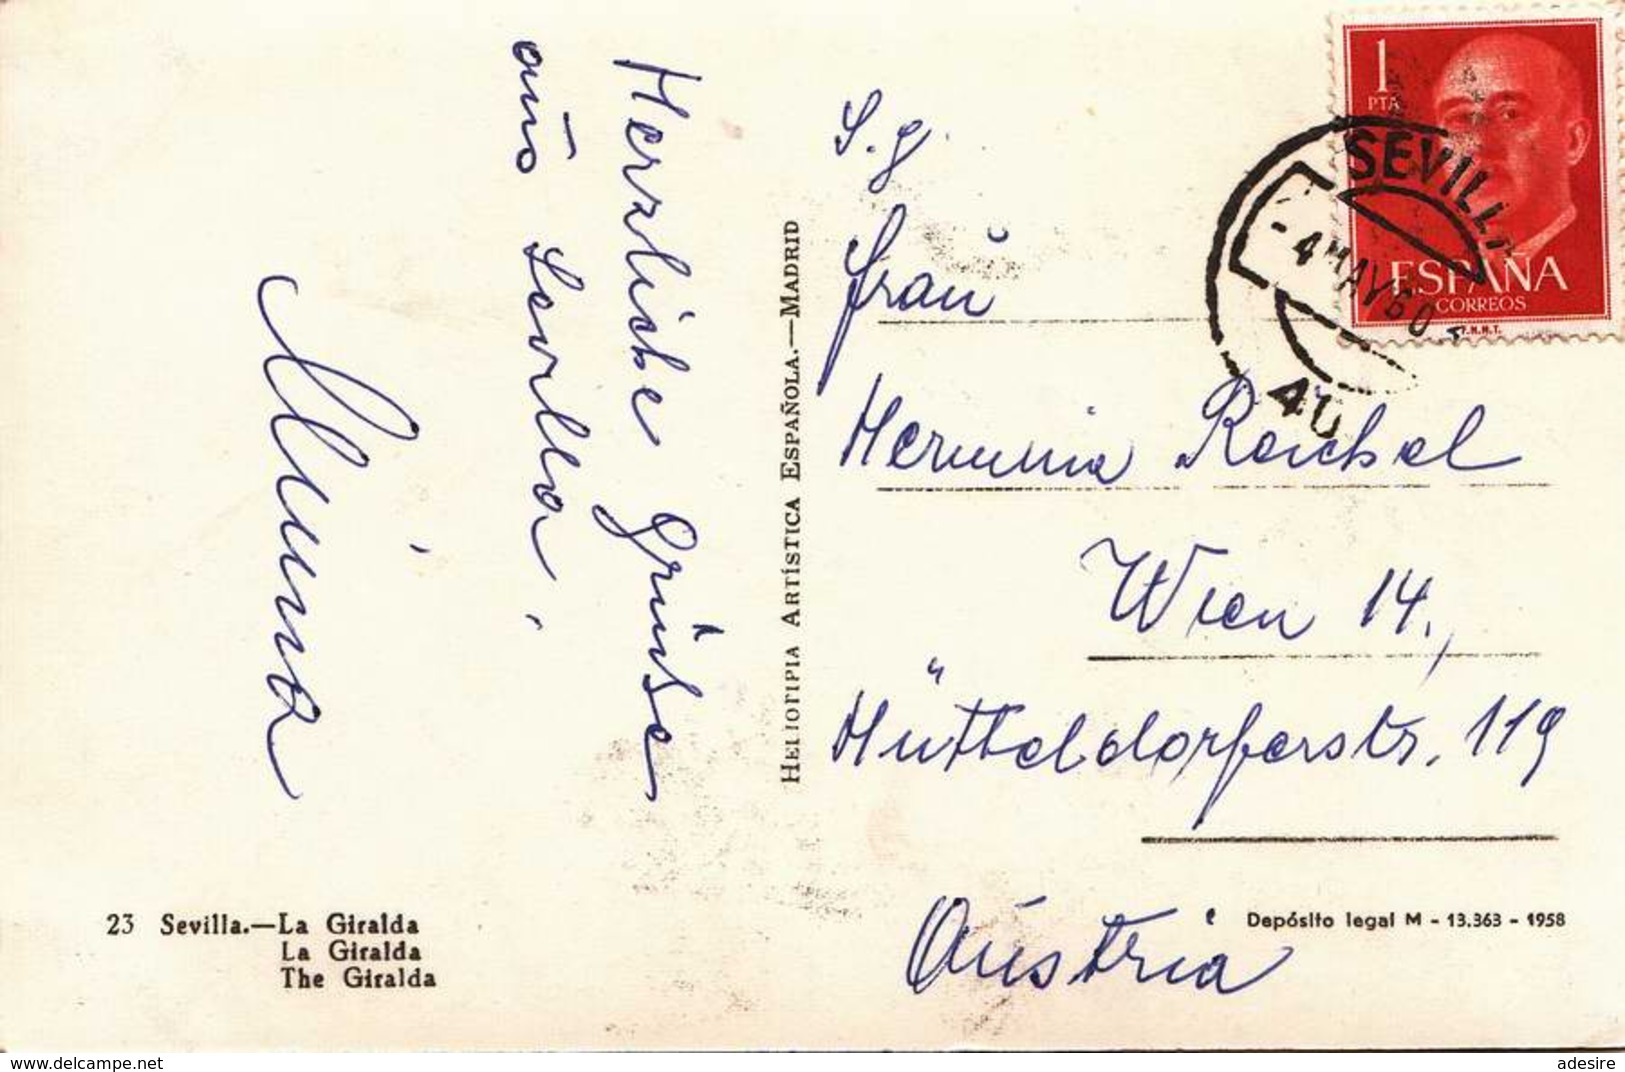 Herzliche Grüsse
aus Sevilla.
S.g.
Frau
Hermina Reichel
Wien 14.,
Hütteldorferstr. 119
Austria
HELIOTIPIA ARTÍSTICA ESPAÑOLA.—MADRID
1
PTA
ESPAÑA
CORREOS
F.N.M.T.
SEVILLA
- 4 MAY 60
23 Sevilla.—La Giralda
La Giralda
The Giralda
Depósito legal M - 13.363 - 1958
www.delcampe.net
adesire